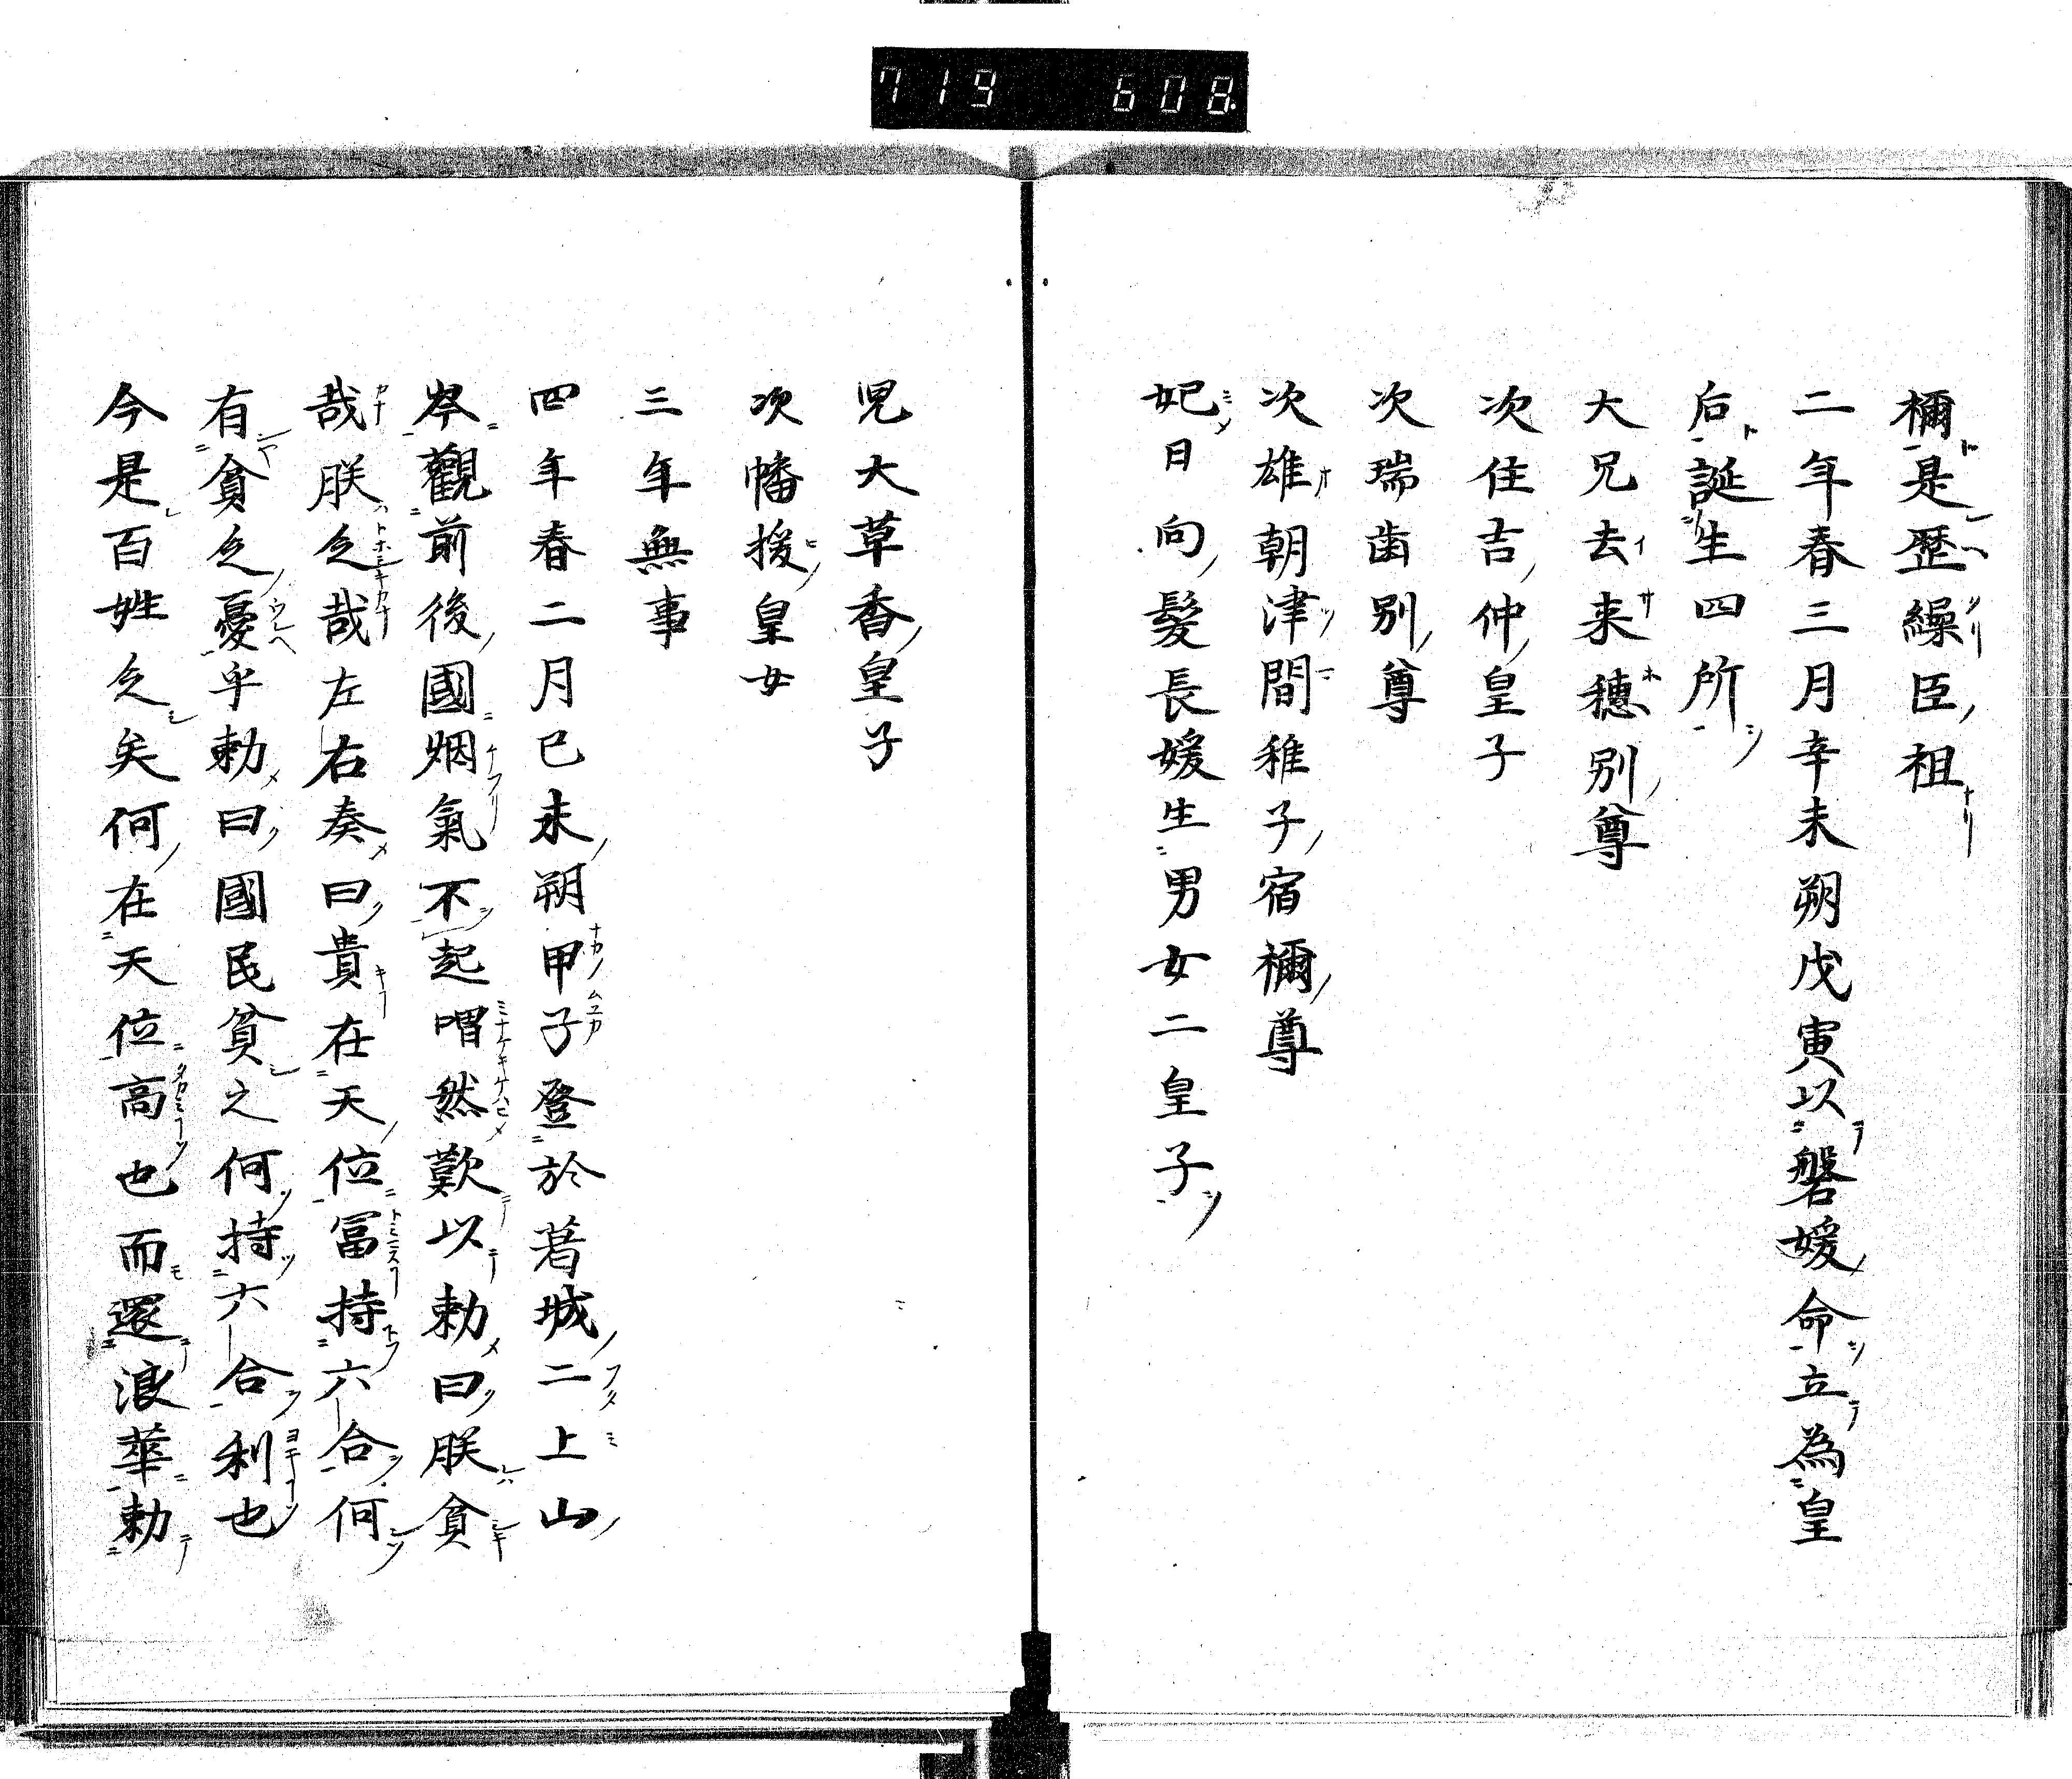 719 608
禰是歴繰臣祖
二年春三月辛未朔戊寅以磐媛命立為皇
后誕生四所
大兄去来穗別尊
次住吉仲皇子
次瑞歯別尊
次雄朝津間稚子宿禰尊
妃日向髮長媛生男女二皇子
児大草香皇子
次幡援皇女
三年無事
四年春二月己未朔甲子登於葛城二上山
岑觀前後國烟氣不起喟然歎以勅曰朕貧
哉朕乏哉左右奏曰貴在天位冨持六合何
有貧乏憂乎勅曰國民貧之何持六合利也
今是百姓乏矣何在天位高也而還浪華勅